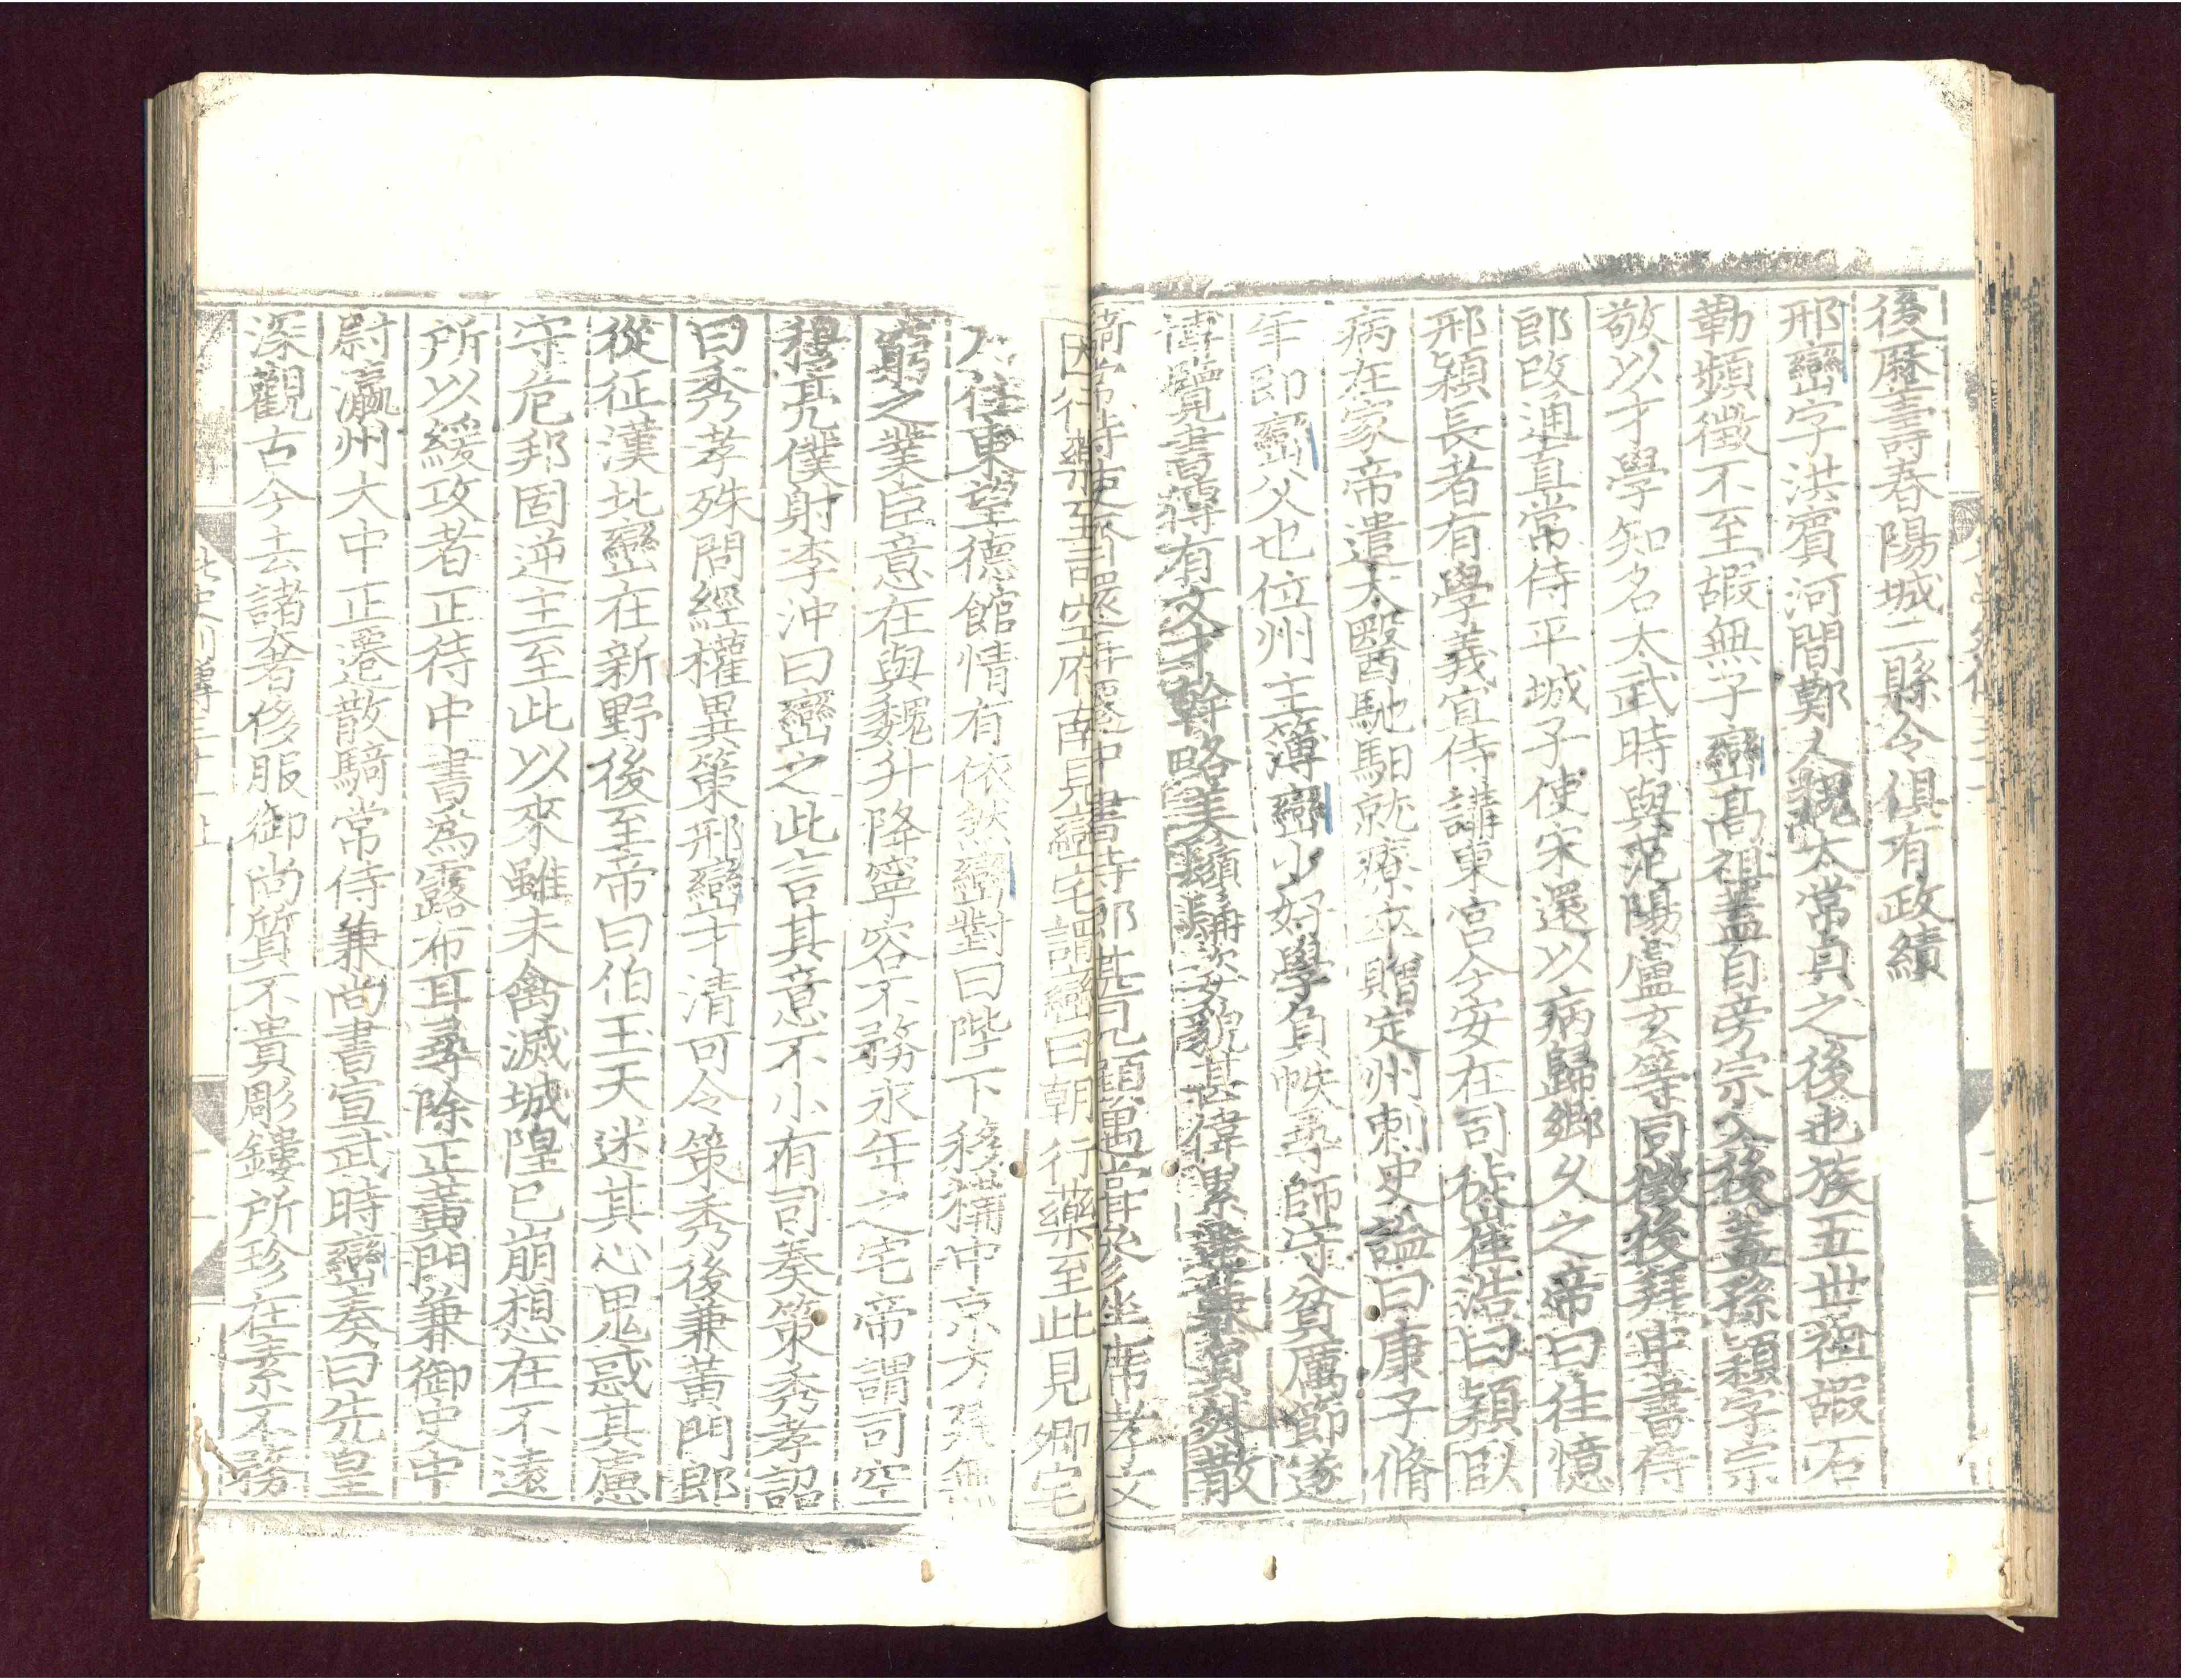 後歷壽春陽城二縣令俱有政績
邢巒字洪賓河間鄭人魏太常貞之後也族五世祖嘏石
勒頻徵不至嘏無子巒高祖蓋自旁宗入後蓋孫穎字宗
敬以才學知名太武時與范陽盧玄等同徵後拜中書侍
郎改通直常侍平城子使宋還以病歸鄉久之帝曰往憶
邢穎長者有學義宜侍講東宮今安在司徒崔浩曰穎臥
病在家帝遣太醫馳馹就療卒贈定州刺史諡曰康子脩
年即巒父也位州主簿巒少好學負帙尋師守貧厲節遂
博覽書傳有文才幹略美鬚髯姿貌甚偉累遷兼員外散
騎常侍使齊還再遷中書侍郎甚見顧遇常參坐席孝文
因行藥至司空府南見巒宅謂巒曰朝行藥至此見卿宅
乃住東望德館情有依然巒對曰陛下移構中京方建無
窮之業臣意在與魏升降寧容不務永年之宅帝謂司空
穆亮僕射李沖曰巒之此言其意不小有司奏策秀孝詔
曰秀孝殊問經權異策邢巒才清可令策秀後兼黃門郎
從征漢北巒在新野後至帝曰伯玉天迷其心鬼惑其慮
守危邦固逆主至此以來雖未禽滅城隍已崩想在不遠
所以緩攻者正待中書爲露布耳尋除正黃門兼御史中
尉瀛州大中正遷散騎常侍兼尚書宣武時巒奏曰先皇
深觀古今去諸奢侈服御尚質不貴彫鏤所珍在素不務
北史列傳三十一